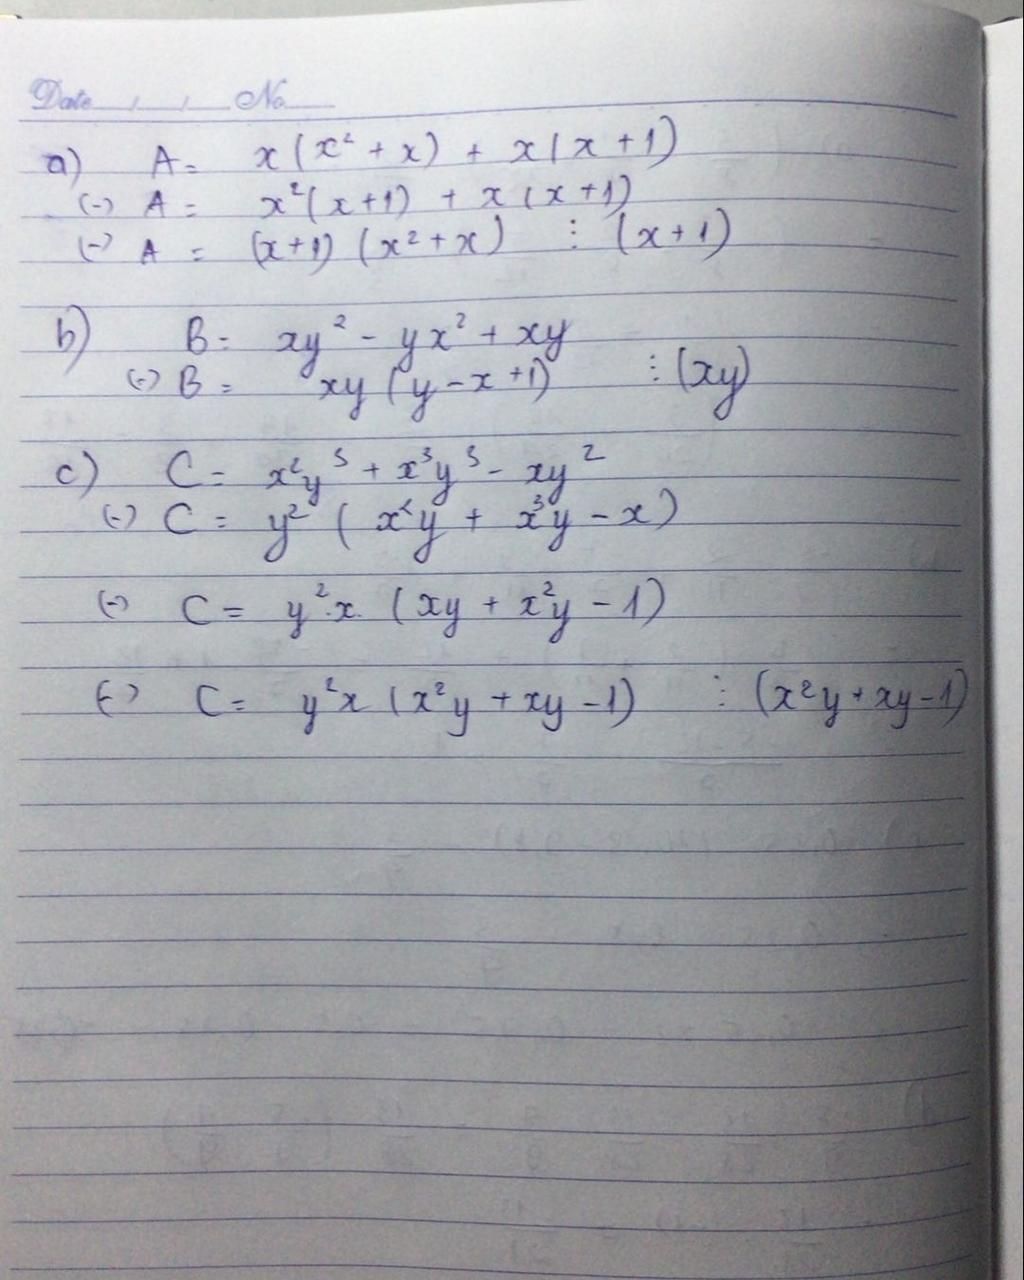 Date , , No
a) A = x(x² + x) + x(x + 1)
(-) A = x²(x+1) + x(x+1)
(-) A = (x+1)(x²+x) ⋮ (x+1)
b) B = xy² - yx² + xy
(-) B = xy(y-x+1) ⋮ (xy)
c) C = x²y³ + x³y³ - xy²
(-) C = y²(x²y + x³y - x)
(-) C = y².x.(xy + x²y - 1)
(-) C = y²x(x²y + xy - 1) ⋮ (x²y + xy - 1)